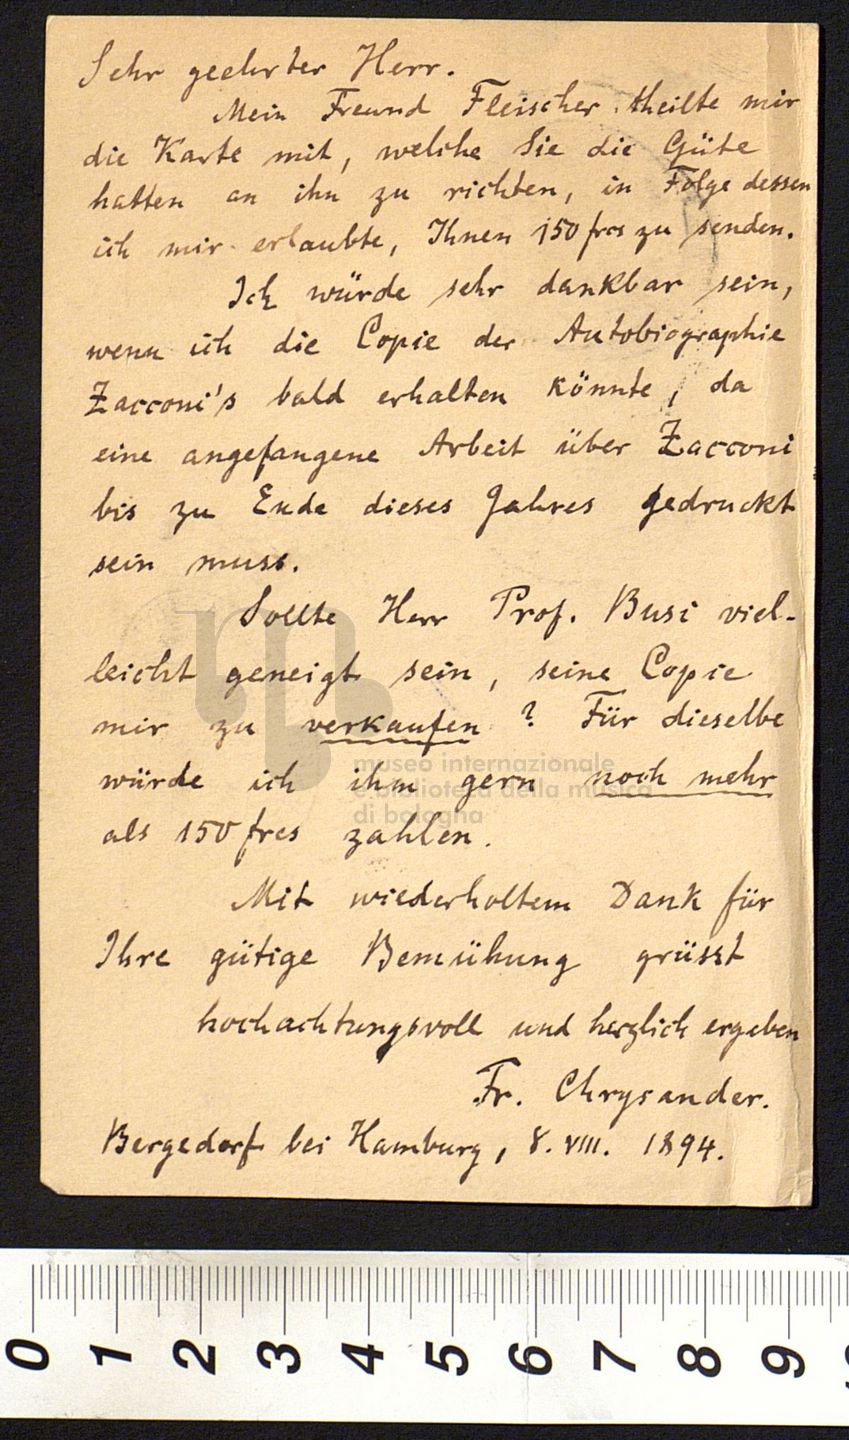 Sehr geehrter Herr.
Mein Freund Fleischer theilte mir
die Karte mit, welche Sie die Güte
hatten an ihn zu richten, in Folge dessen
ich mir erlaubte, Ihnen 150 frcs zu senden.
Ich würde sehr dankbar sein,
wenn ich die Copie der Autobiographie
Zacconi's bald erhalten könnte, da
eine angefangene Arbeit über Zacconi
bis zu Ende dieses Jahres gedruckt
sein muss.
Sollte Herr Prof. Busi viel-
leicht geneigt sein, seine Copie
mir zu verkaufen? Für dieselbe
würde ich ihm gern noch mehr
als 150 frcs zahlen.
Mit wiederholtem Dank für
Ihre gütige Bemühung grüsst
hochachtungsvoll und herzlich ergeben
Fr. Chrysander.
Bergedorf bei Hamburg, 8. VIII. 1894.
museo internazionale
e biblioteca della musica
di bologna
0 1 2 3 4 5 6 7 8 9